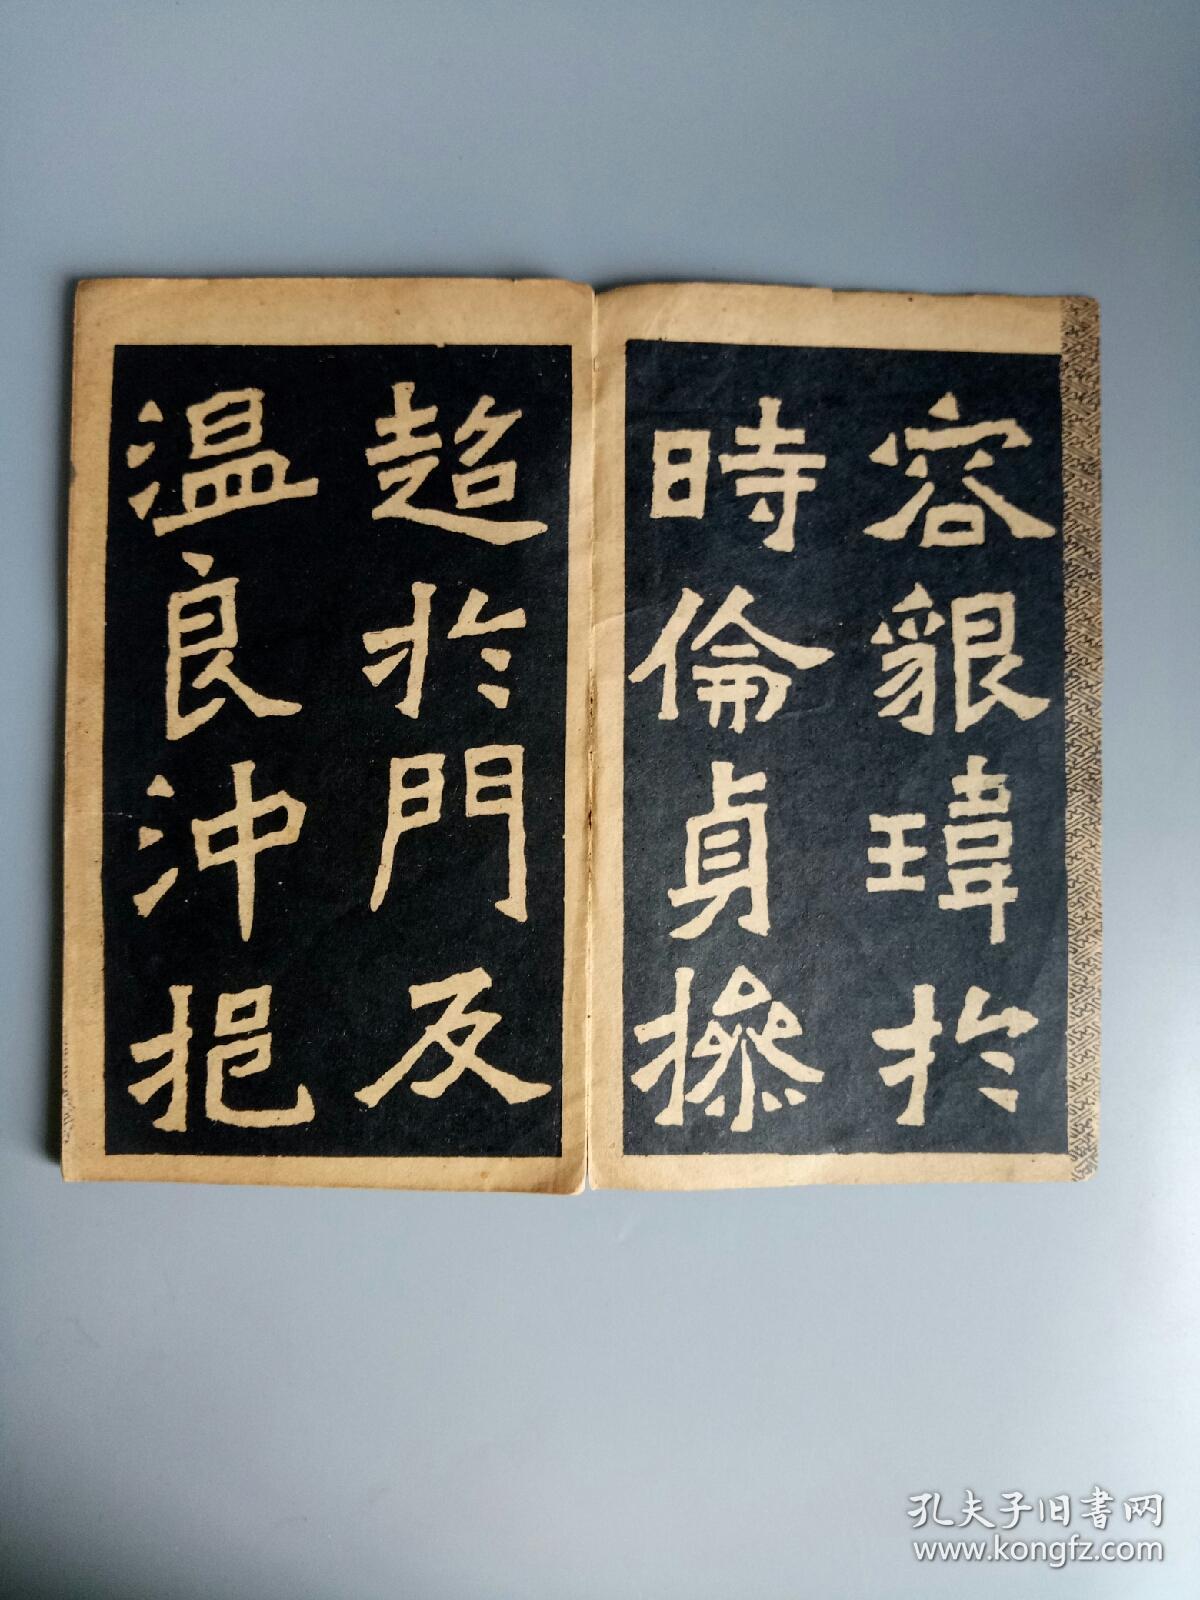 容貌瑋於
時倫貞操
超於門及
温良沖挹
孔夫子旧書网
www.kongfz.com